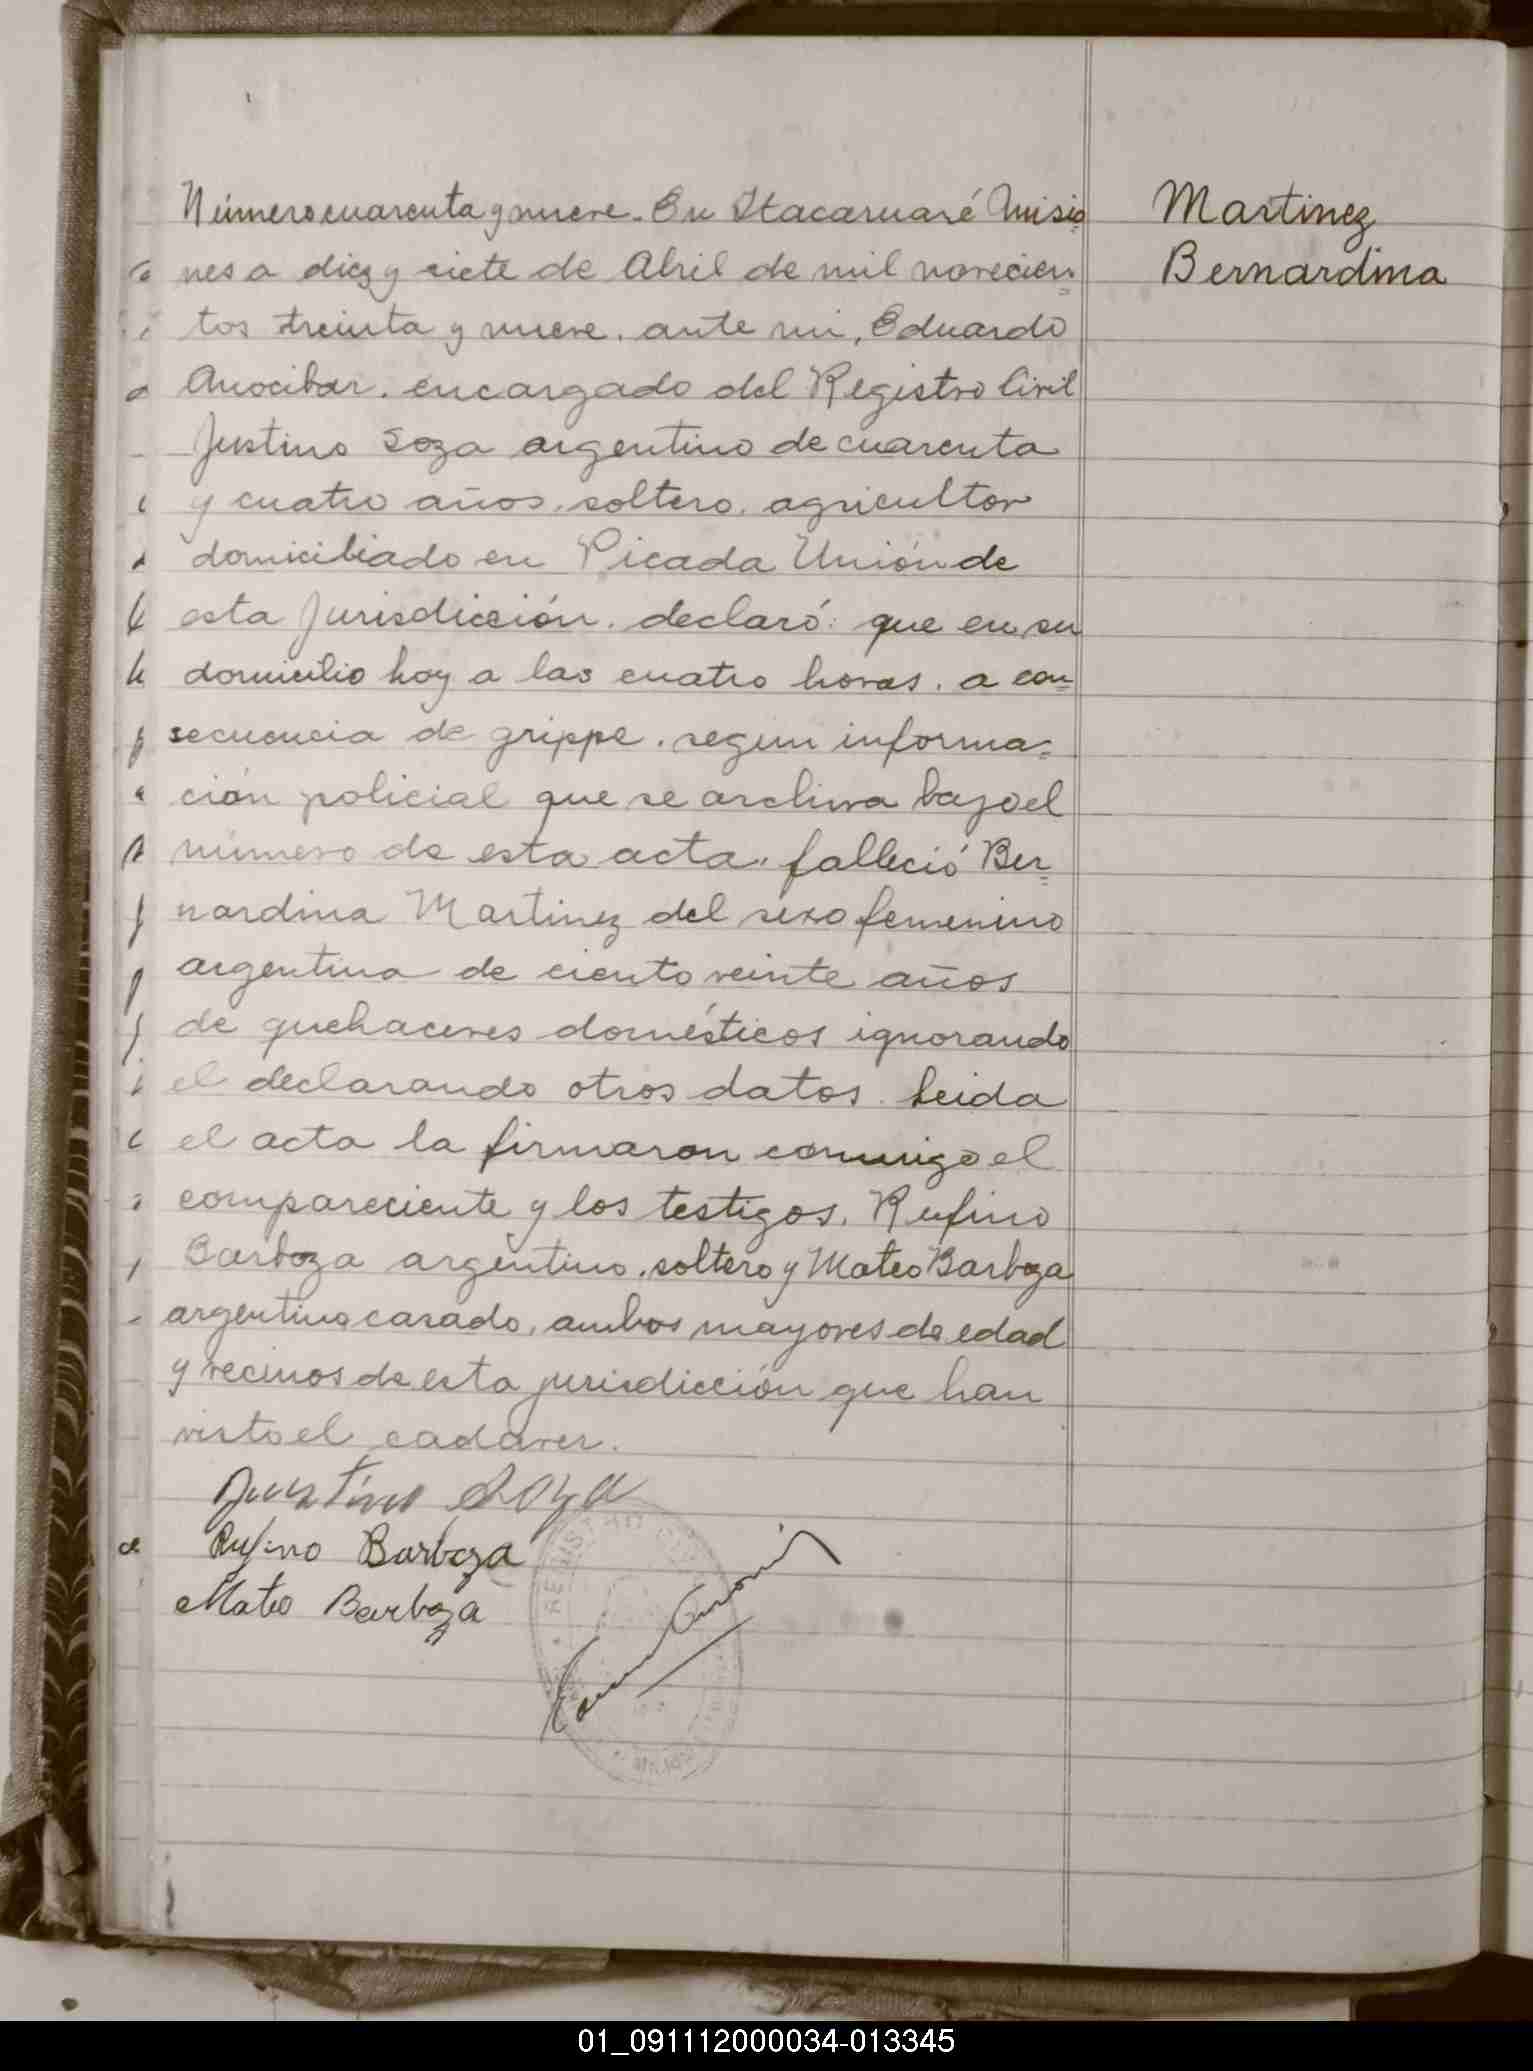 Número cuarenta y nueve. En Itacaruaré Misio=
nes a diez y siete de Abril de mil novecien=
tos treinta y nueve, ante mi, Eduardo
Anocibar, encargado del Registro Civil
Justino Soza argentino de cuarenta
y cuatro años, soltero, agricultor
domiciliado en Picada Unión de
esta Jurisdicción, declaró: que en su
domicilio hoy a las cuatro horas, a con=
secuencia de grippe, segun informa=
ción policial que se archiva bajo el
número de esta acta, falleció Ber=
nardina Martinez del sexo femenino
argentina de ciento veinte años
de quehaceres domésticos ignorando
el declarando otros datos. Leida
el acta la firmaron conmigo el
compareciente y los testigos, Rufino
Barboza argentino, soltero y Mateo Barboza
argentino casado, ambos mayores de edad
y vecinos de esta jurisdicción que han
visto el cadaver.
Justino Soza
Rufino Barboza
Mateo Barboza
REGISTRO
Martinez
Bernardina
01_091112000034-013345